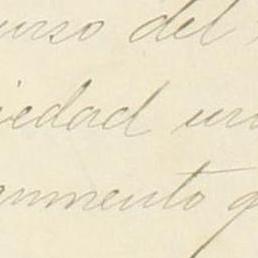 urso del
iedad un
umento q